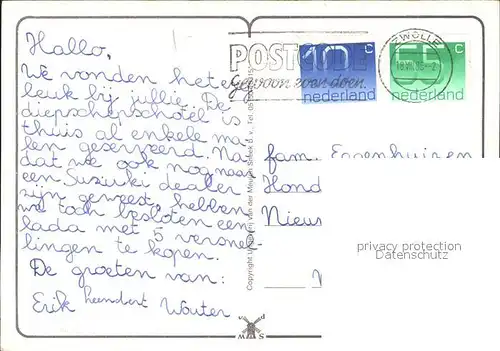 Hallo,
We vonden het erg
leuk bij jullie. De
diepschepschotel is
thuis al enkele ma-
len geserveerd. Na
dat we ook nog naar
een Suzuki dealer
zijn geweest, hebben
we toch besloten een
lada met 5 versnel
lingen te kopen.
De groeten van:
Erik Wouter
POSTCODE
Gewoon even doen.
ZWOLLE
10 c
nederland
55 c
nederland
fam. Eggenhuizen
Hond
Nieu
privacy protection
Datenschutz